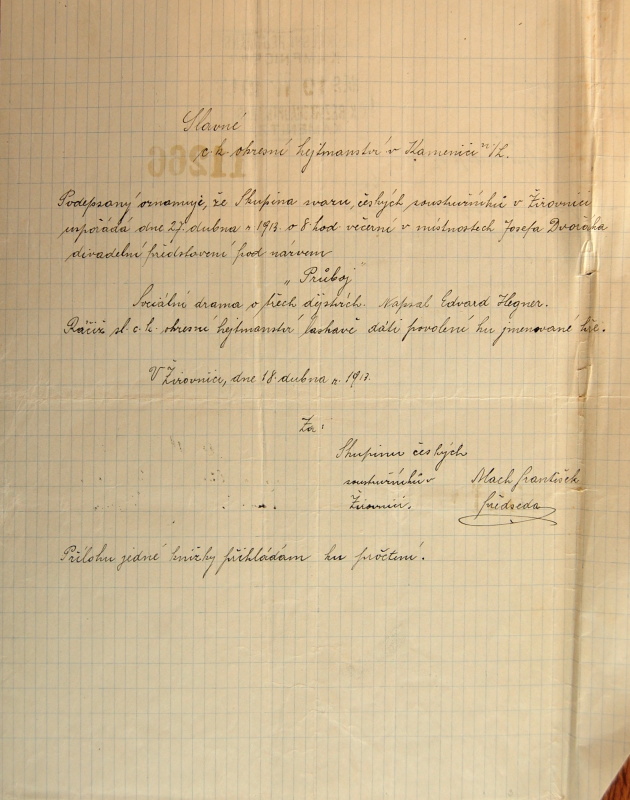 Slavné
c k okresní hejtmanství v Kamenici n/L.
Podepsaný oznamuje, že Skupina svazu, českých soustružníků v Žirovnici
uspořádá dne 27. dubna r. 1913 o 8 hod večerní v místnostech Josefa Dvořáka
divadelní představení pod názvem
„Průboj"
Sociální drama o třech dějstvích. Napsal Edvard Hegner.
Račiž sl. c. k. okresní hejtmanství laskavě dáti povolení ku jmenované hře.
V Žirovnici, dne 18. dubna r. 1913.
Za:
Skupinu českých
soustružníků v
Žirovnici.
Mach František
předseda
Přílohu jedné knížky přikládám ku pročtení.
11266